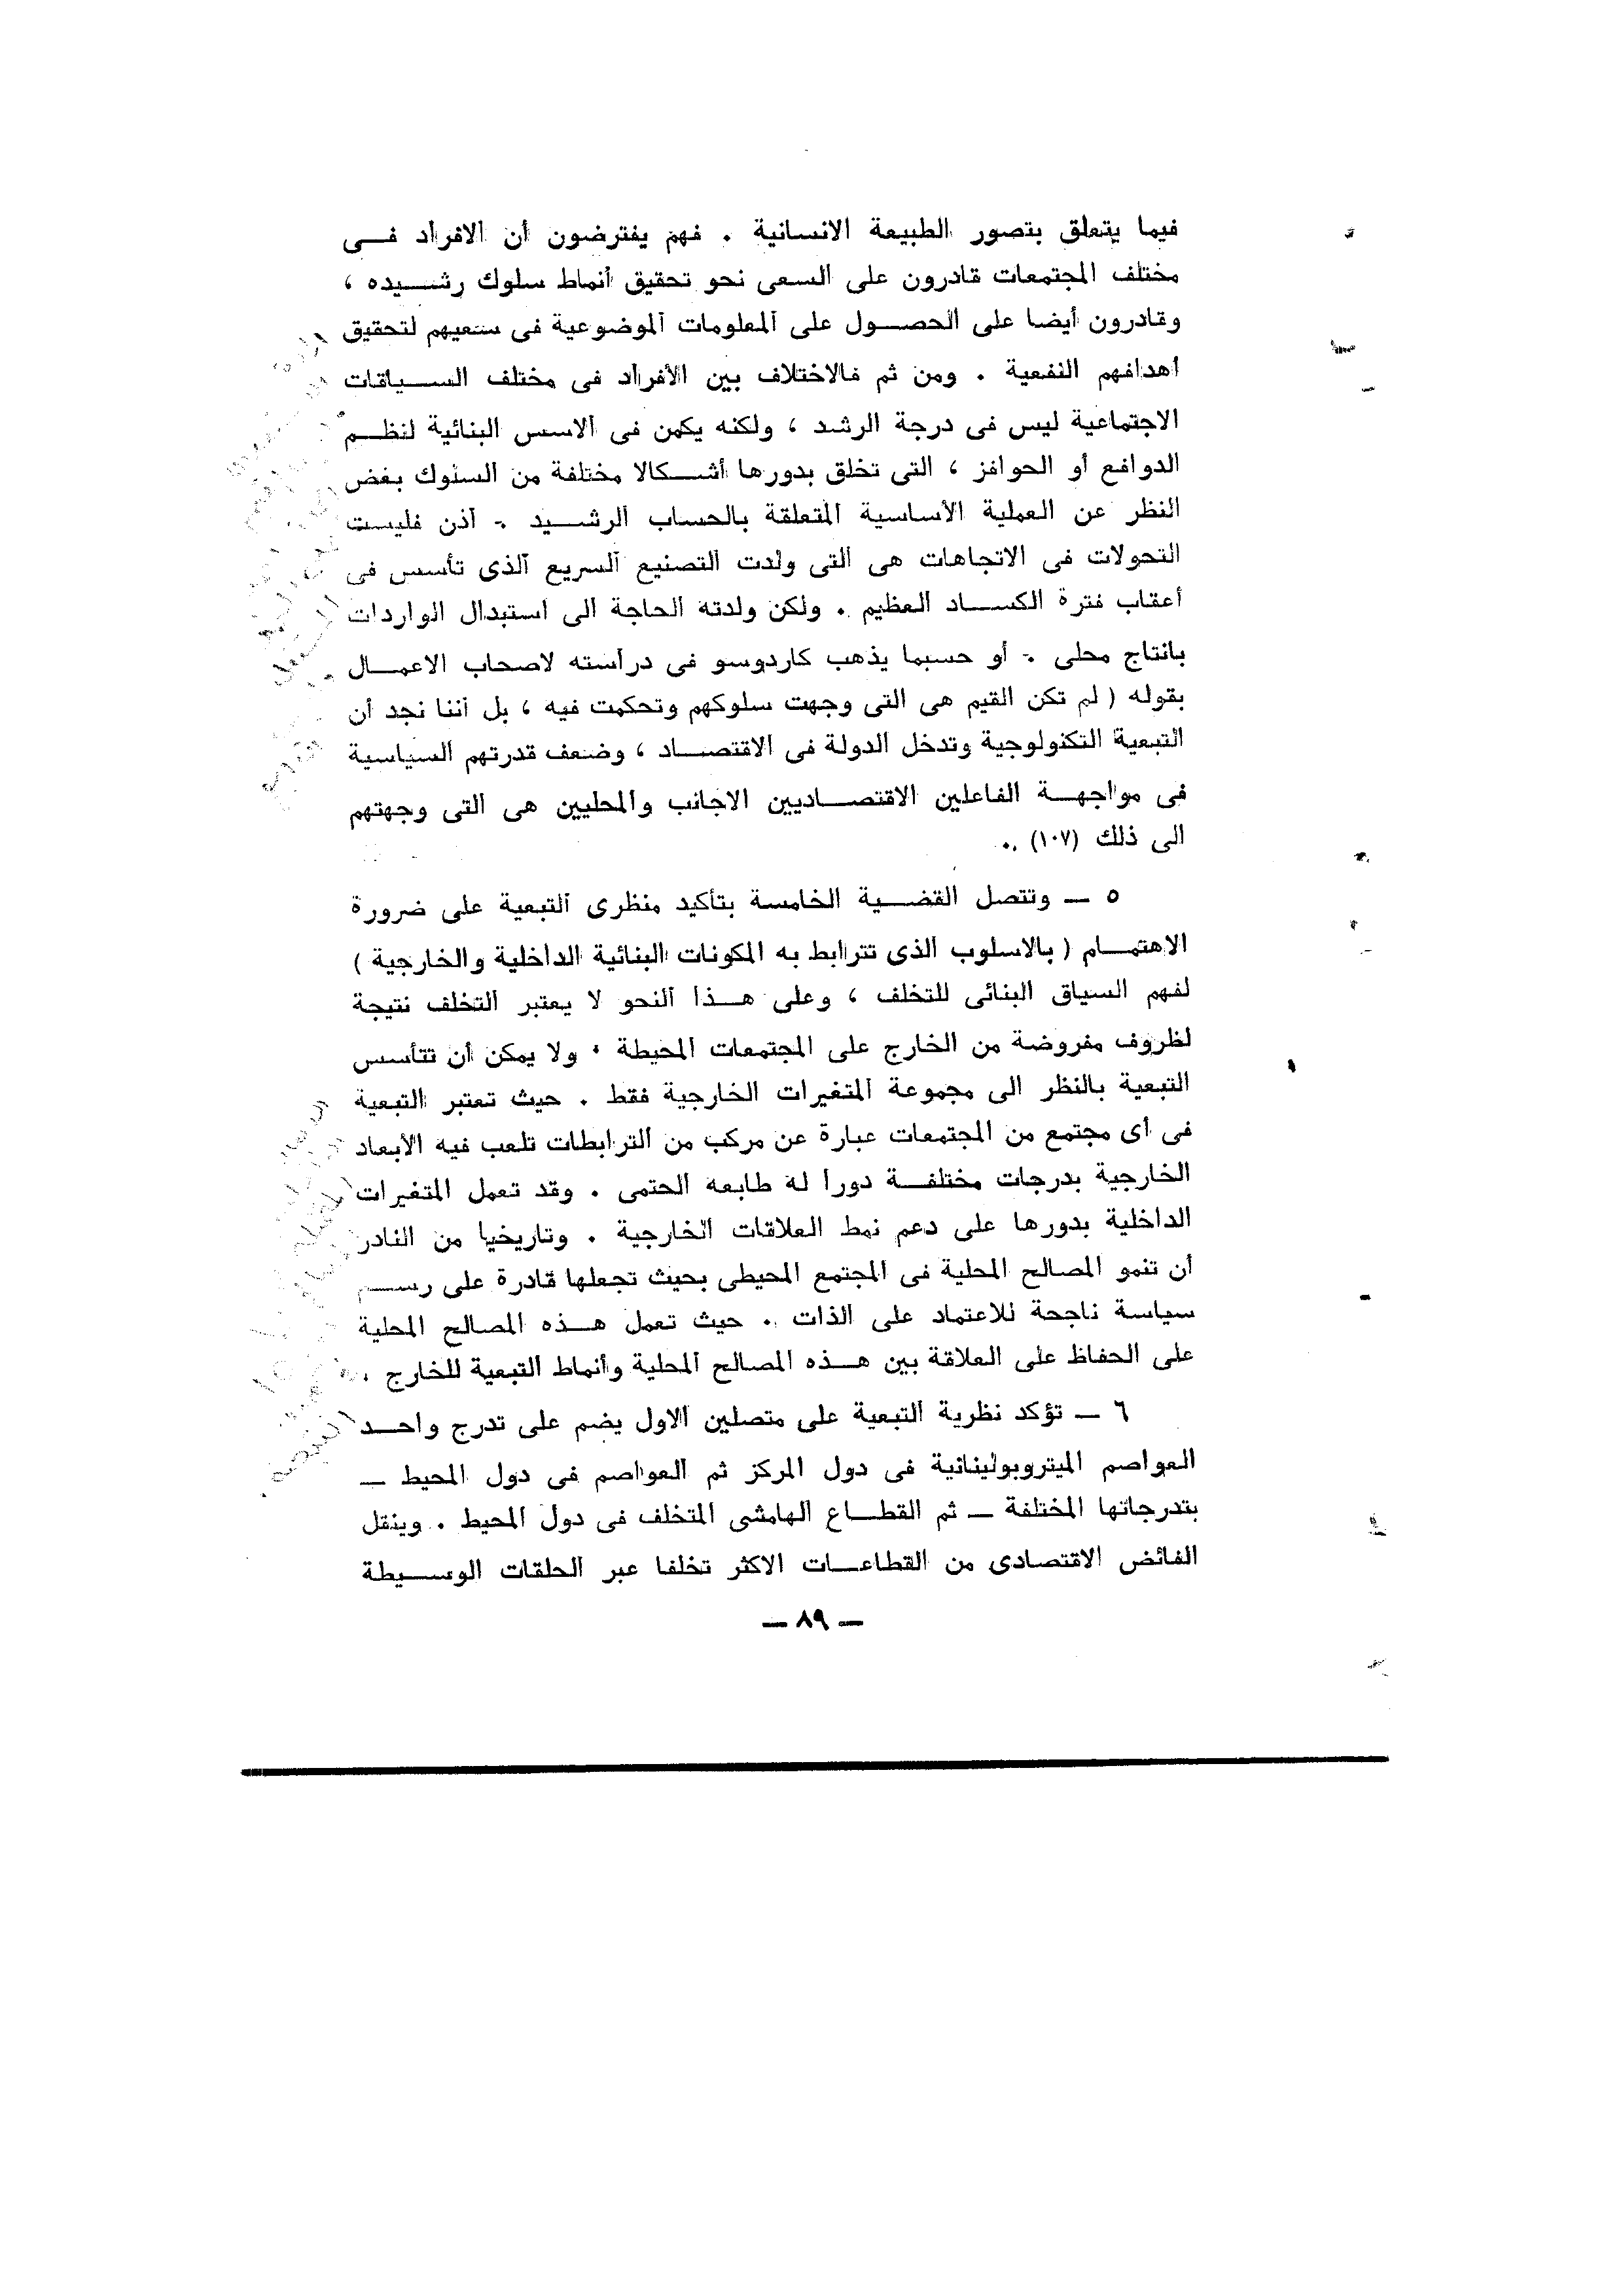 فيما يتعلق بتصور الطبيعة الانسانية . فهم يفترضون أن الافراد فــى
مختلف المجتمعات قادرون على السعى نحو تحقيق أنماط سلوك رشــيده ،
وقادرون أيضا على الحصــول على المعلومات الموضوعية فى سعيهم لتحقيق
أهدافهم النفعية . ومن ثم فالاختلاف بين الأفراد فى مختلف الســياقات
الاجتماعية ليس فى درجة الرشد ، ولكنه يكمن فى الاسس البنائية لنظــم
الدوافع أو الحوافز ، التى تخلق بدورها أشــكالا مختلفة من السلوك بغض
النظر عن العملية الأساسية المتعلقة بالحساب الرشــيد . اذن فليست
التحولات فى الاتجاهات هى التى ولدت التصنيع السريع الذى تأسس فى
أعقاب فترة الكســاد العظيم . ولكن ولدته الحاجة الى استبدال الواردات
بانتاج محلى . أو حسبما يذهب كاردوسو فى دراسته لاصحاب الاعمــال
بقوله ( لم تكن القيم هى التى وجهت سلوكهم وتحكمت فيه ، بل اننا نجد أن
التبعية التكنولوجية وتدخل الدولة فى الاقتصــاد ، وضعف قدرتهم السياسية
فى مواجهــة الفاعلين الاقتصــاديين الاجانب والمحليين هى التى وجهتهم
الى ذلك (١٠٧) .
٥ ــ وتتصل القضــية الخامسة بتأكيد منظرى التبعية على ضرورة
الاهتمــام ( بالاسلوب الذى تترابط به المكونات البنائية الداخلية والخارجية )
لفهم السياق البنائى للتخلف ، وعلى هــذا النحو لا يعتبر التخلف نتيجة
لظروف مفروضة من الخارج على المجتمعات المحيطة . ولا يمكن أن تتأسس
التبعية بالنظر الى مجموعة المتغيرات الخارجية فقط . حيث تعتبر التبعية
فى أى مجتمع من المجتمعات عبارة عن مركب من الترابطات تلعب فيه الأبعاد
الخارجية بدرجات مختلفــة دورا له طابعه الحتمى . وقد تعمل المتغيرات
الداخلية بدورها على دعم نمط العلاقات الخارجية . وتاريخيا من النادر
أن تنمو المصالح المحلية فى المجتمع المحيطى بحيث تجعلها قادرة على رســم
سياسة ناجحة للاعتماد على الذات . حيث تعمل هــذه المصالح المحلية
على الحفاظ على العلاقة بين هــذه المصالح المحلية وأنماط التبعية للخارج .
٦ ــ تؤكد نظرية التبعية على متصلين الاول يضم على تدرج واحــد
العواصم الميتروبولينانية فى دول المركز ثم العواصم فى دول المحيط ــ
بتدرجاتها المختلفة ــ ثم القطــاع الهامشى المتخلف فى دول المحيط . وينقل
الفائض الاقتصادى من القطاعــات الاكثر تخلفا عبر الحلقات الوســيطة
ــ ٨٩ ــ